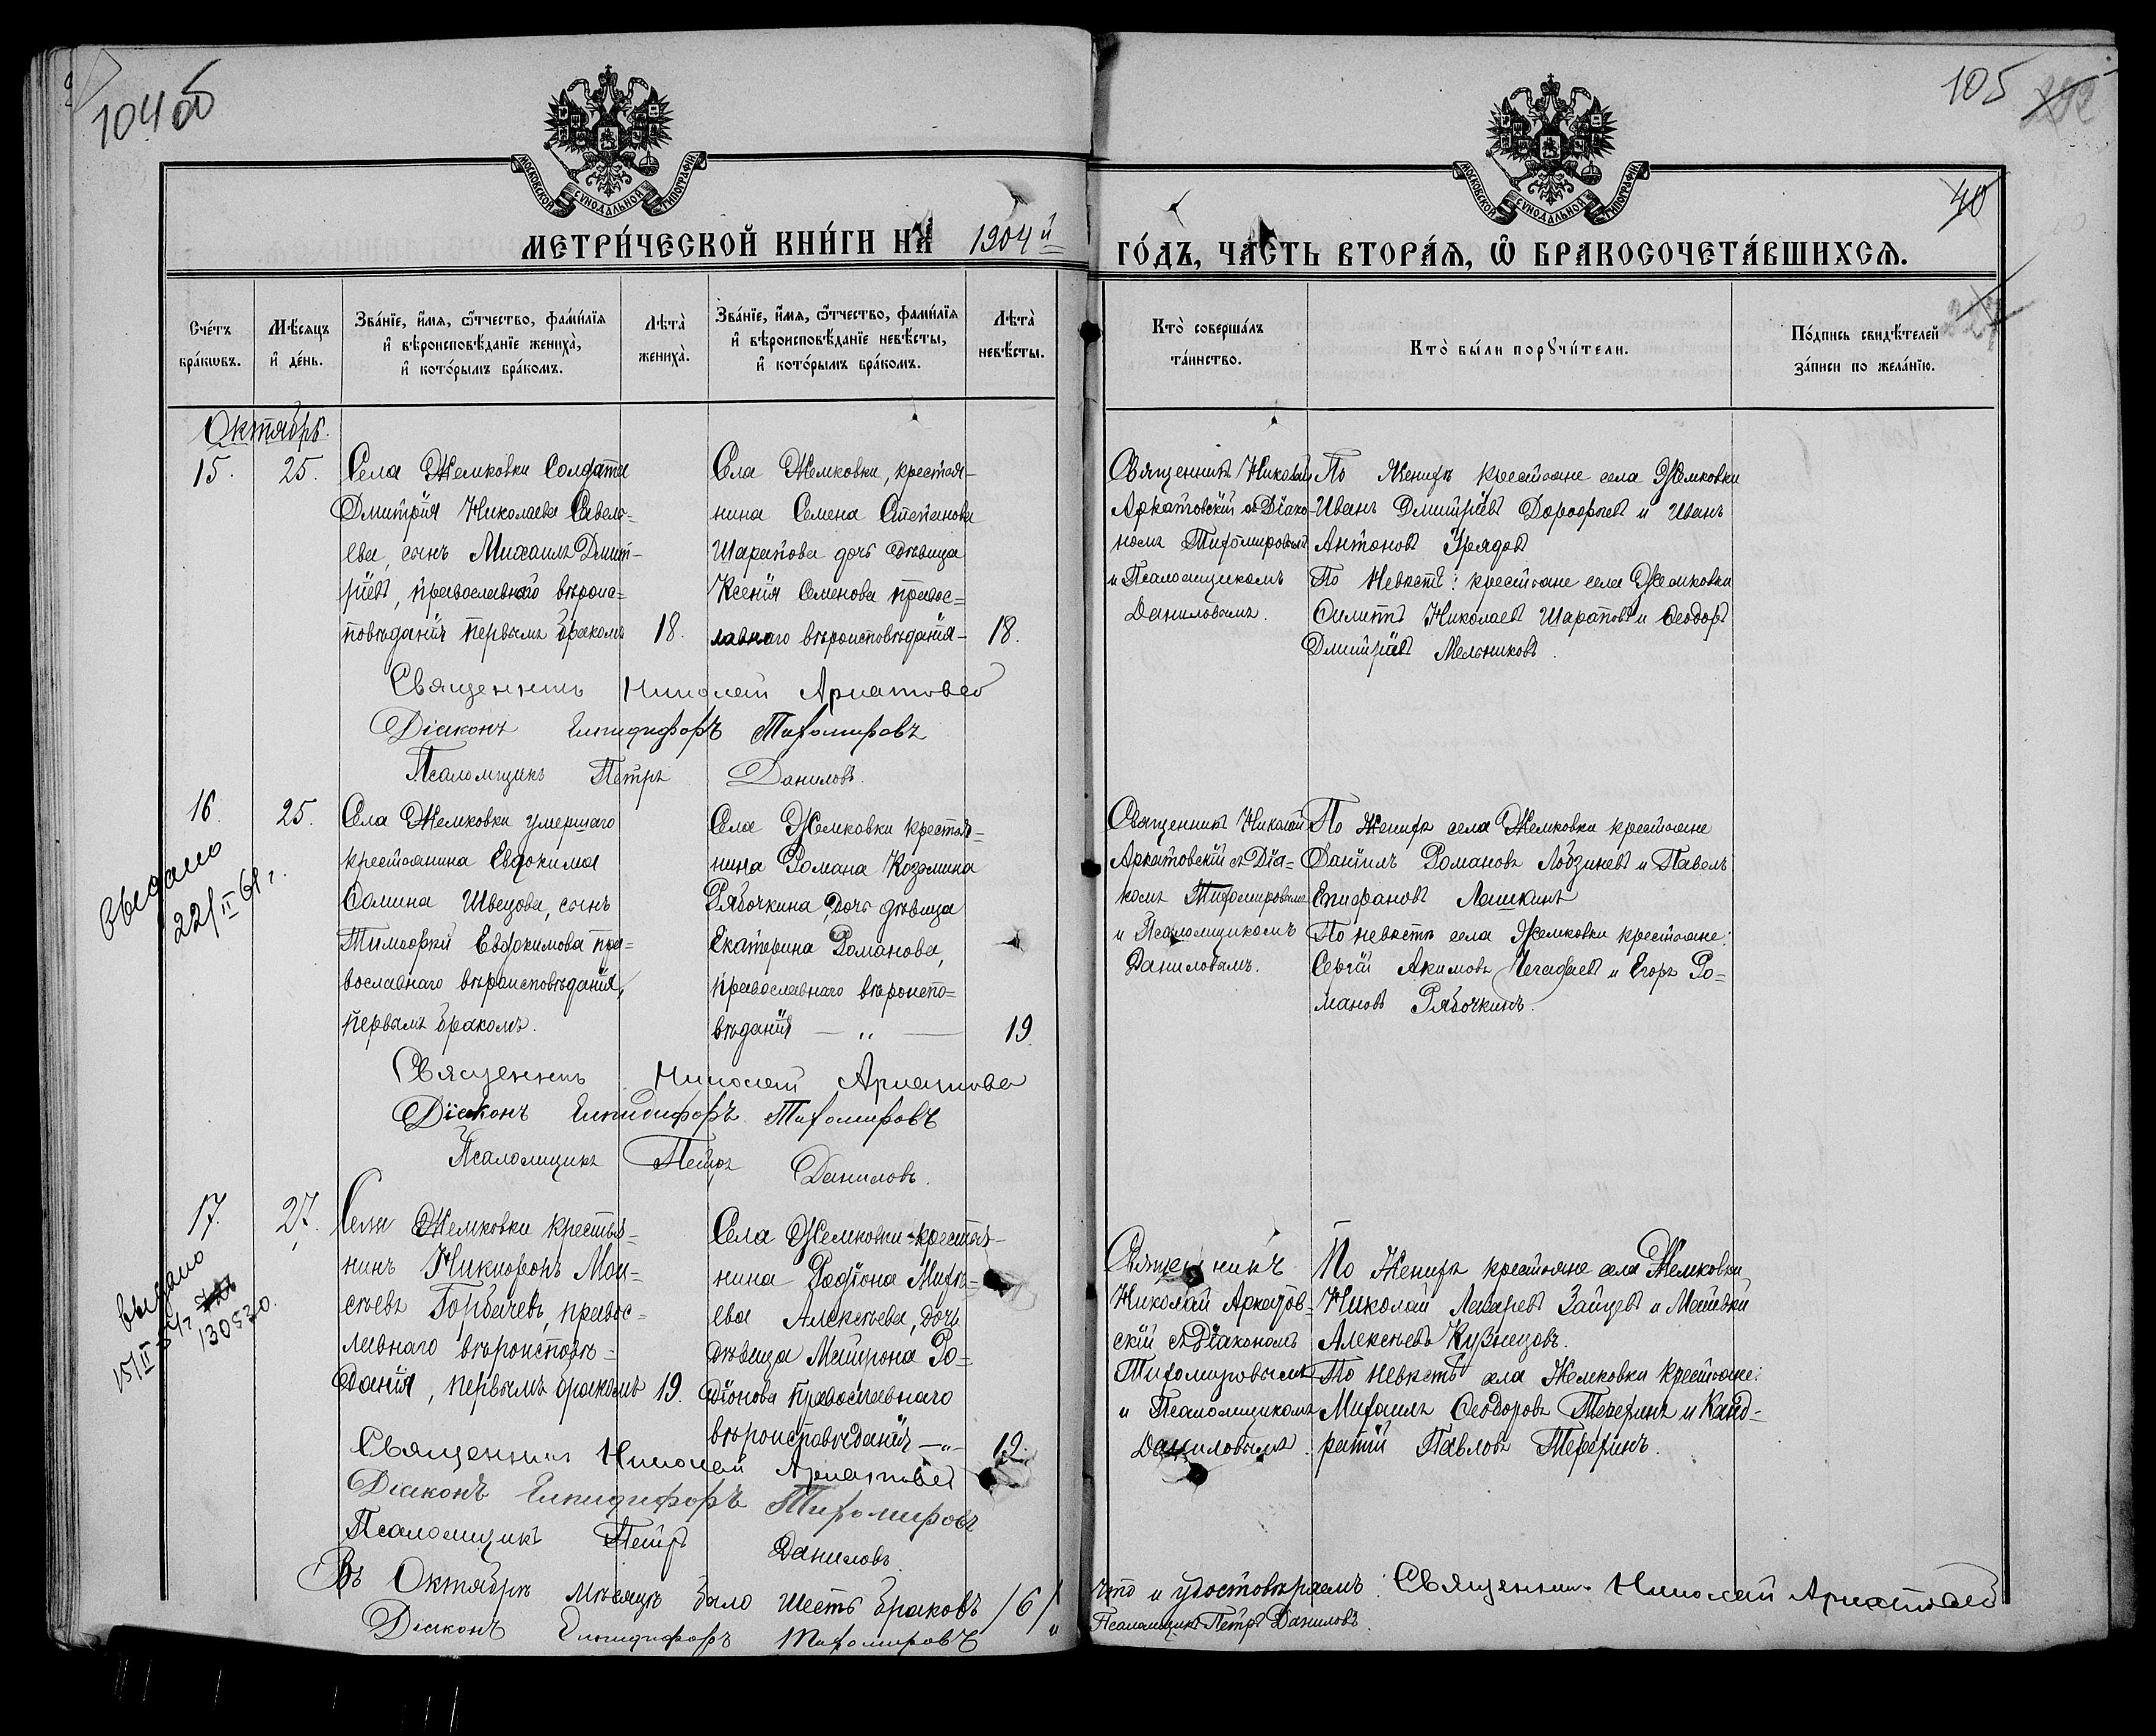 104 об
105
МОСКОВСКОЙ СѴНОДАЛЬНОЙ ТИПОГРАФІИ
МОСКОВСКОЙ СѴНОДАЛЬНОЙ ТИПОГРАФІИ
40
МЕТРИ́ЧЕСКОЙ КНИ́ГИ НА̀ 1904й
ГО́ДЪ, ЧА́СТЬ ВТОРА́Ѧ, Ѿ БРАКОСОЧЕТА́ВШИХСѦ.
Сче́тъ бра́кωвъ.
Мѣ́сѧцъ и҆ де́нь.
Зва́нїе, и҆́мѧ, ѻ҆́тчество, фамі́лїѧ и҆ вѣроисповѣ́данїе жениха̀, и҆ кото́рымъ бра́комъ.
Лѣта̀ жениха̀.
Зва́нїе, и҆́мѧ, ѻ҆́тчество, фамі́лїѧ и҆ вѣроисповѣ́данїе невѣ́сты, и҆ кото́рымъ бра́комъ.
Лѣта̀ невѣ́сты.
Кто̀ соверша́лъ та́инство.
Кто̀ бы́ли порꙋчи́тели.
По́дпись свидѣ́телей за́писи по жела́нїю.
Октябрь.
15.
25.
Села Жемковки Солдата
Дмитрія Николаева Савель-
ева, сынъ Михаилъ Дмит-
ріевъ, православнаго вѣроис-
повѣданія первымъ бракомъ
18.
Села Жемковки, крестья-
нина Семена Степанова
Шарапова дочь дѣвица
Ксенія Семенова правос-
лавнаго вѣроисповѣданія-
18.
Священникъ Николай
Аркатовскій съ Діако-
номъ Тихомировымъ
и Псаломщикомъ
Даниловымъ.
По Женихѣ крестьяне села Жемковки
Иванъ Дмитріевъ Дорофѣевъ и Иванъ
Антоновъ Урядовъ
По Невѣстѣ: крестьяне села Жемковки
Филипъ Николаевъ Шараповъ и Ѳеодоръ
Дмитріевъ Мельниковъ.
Священникъ Николай Аркатовскій
Діаконъ Елпидифоръ Тихомировъ
Псаломщикъ Петръ Даниловъ.
16.
25.
выдано
22/II 61 г.
Села Жемковки умершаго
крестьянина Евдокима
Ѳомина Швецова, сынъ
Тимоѳей Евдокимова пра-
вославнаго вѣроисповѣданія,
первымъ бракомъ.
Села Жемковки крестья-
нина Романа Козьмина
Рябочкина дочь дѣвица
Екатерина Романова,
православнаго вѣроиспо-
вѣданія — „ —
19
Священникъ Николай
Аркатовскій съ Діа-
комъ Тихомировымъ
и Псаломщикомъ
Даниловымъ.
По Женихѣ села Жемковки крестьяне
Даніилъ Романовъ Лобзиневъ и Павелъ
Епифановъ Лашкинъ
По невѣстѣ села Жемковки крестьяне:
Сергѣй Акимовъ Чегадаевъ и Егоръ Ро-
мановъ Рябочкинъ.
Священникъ Николай Аркатовскій
Діаконъ Елпидифоръ Тихомировъ
Псаломщикъ Петръ Даниловъ.
17.
27.
выдано
130530.
Села Жемковки крестья-
нинъ Никифоръ Мои-
сѣевъ Горбачевъ, правос-
лавнаго вѣроисповѣ-
данія, первымъ бракомъ
19.
Села Жемковки крестья-
нина Родіона Михѣ-
ева Алексѣева, дочь
дѣвица Матрона Ро-
діонова православнаго
вѣроисповѣданія —„—
19.
Священникъ
Николай Аркатов-
скій съ Діакономъ
Тихомировымъ
и Псаломщикомъ
Даниловымъ.
По Женихѣ крестьяне села Жемковки
Николай Лазаревъ Зайцевъ и Матвѣй
Алексѣевъ Кузнецовъ.
По невѣстѣ села Жемковки крестьяне:
Михаилъ Ѳеодоровъ Терехинъ и Канд-
ратій Павловъ Терехинъ.
Священникъ Николай Аркатовскій
Діаконъ Елпидифоръ Тихомировъ
Псаломщикъ Петръ Даниловъ
Въ Октябрѣ мѣсяцѣ было шесть браковъ /6/
что и удостовѣряемъ: Священникъ Николай Аркатовскій
Діаконъ Елпидифоръ Тихомировъ
Псаломщикъ Петръ Даниловъ.